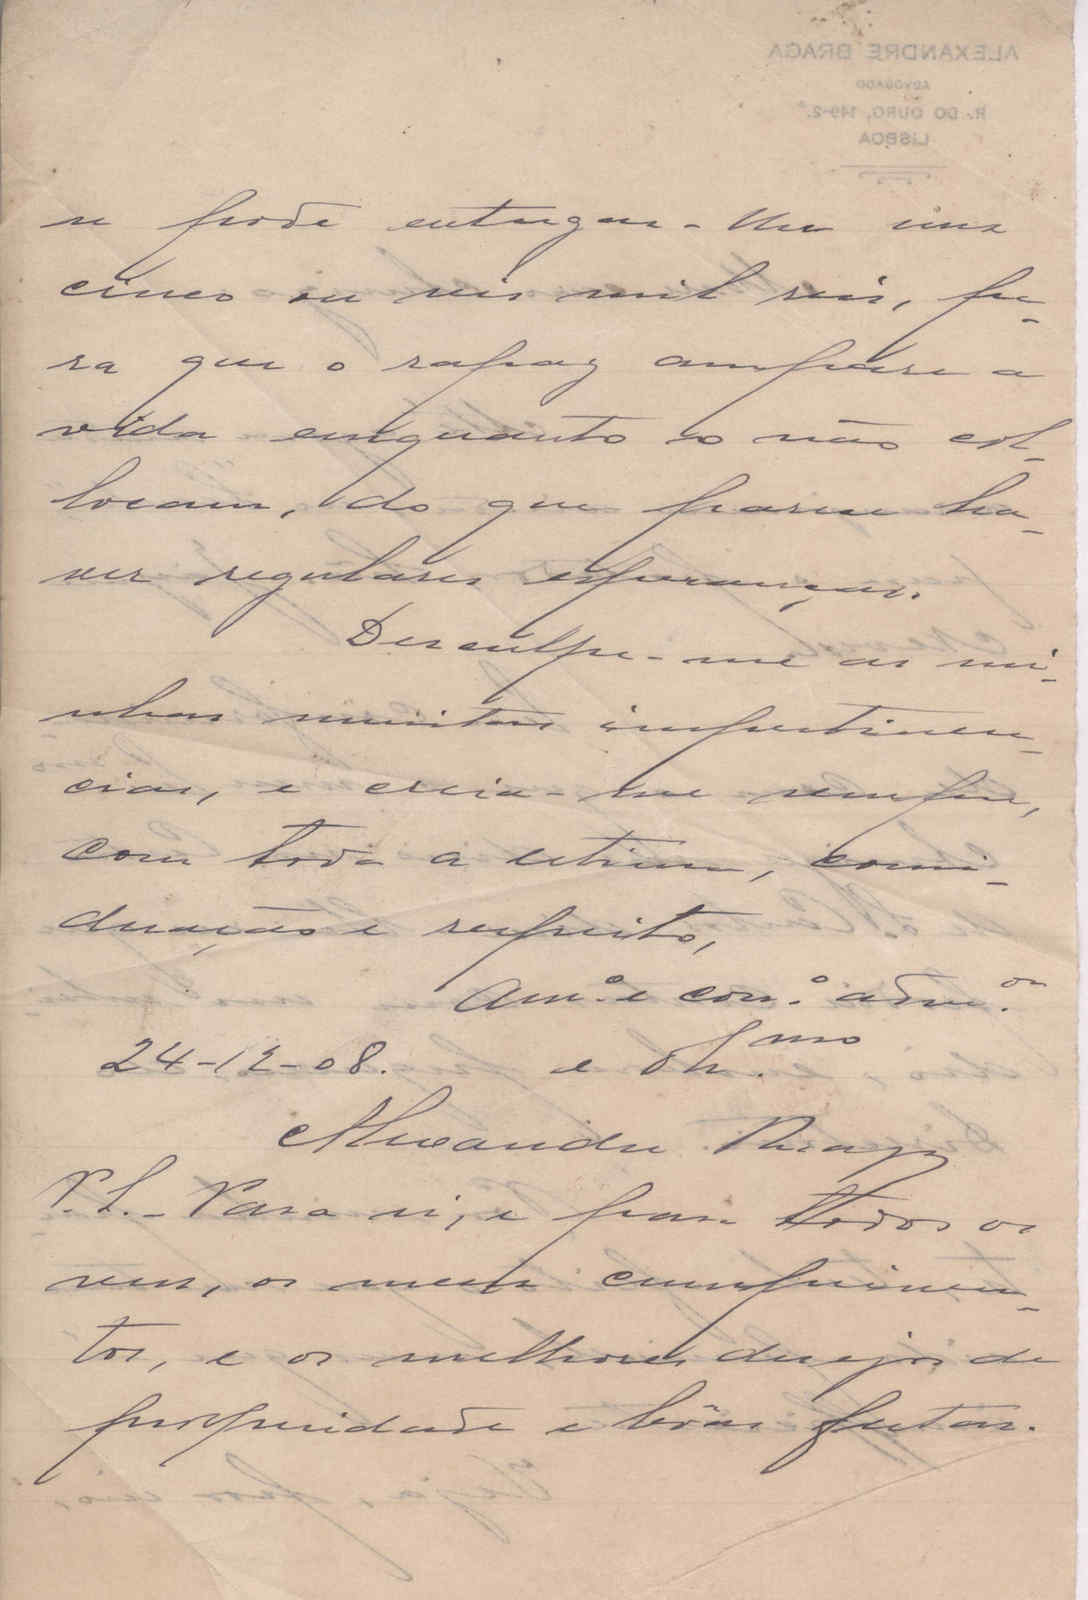 ALEXANDRE BRAGA
ADVOGADO
R. DO OURO, 149-2.º
LISBOA
se pode entregar-lhe uns
cinco ou seis mil reis, pa-
ra que o rapaz ampare a
vida emquanto o não col-
locam, do que parece ha-
ver regulares esperanças.
Desculpe-me as mi-
nhas muitas impertinen-
cias, e creia-me sempre,
com toda a estima, consi-
deração e respeito,
Am.º e corr.º adm.or
24-12-08. e Ob.mo
Alexandre Braga
P.S. - Para si, e para todos os
seus, os meus cumprimen-
tos, e os melhores desejos de
prosperidade e bôas festas.